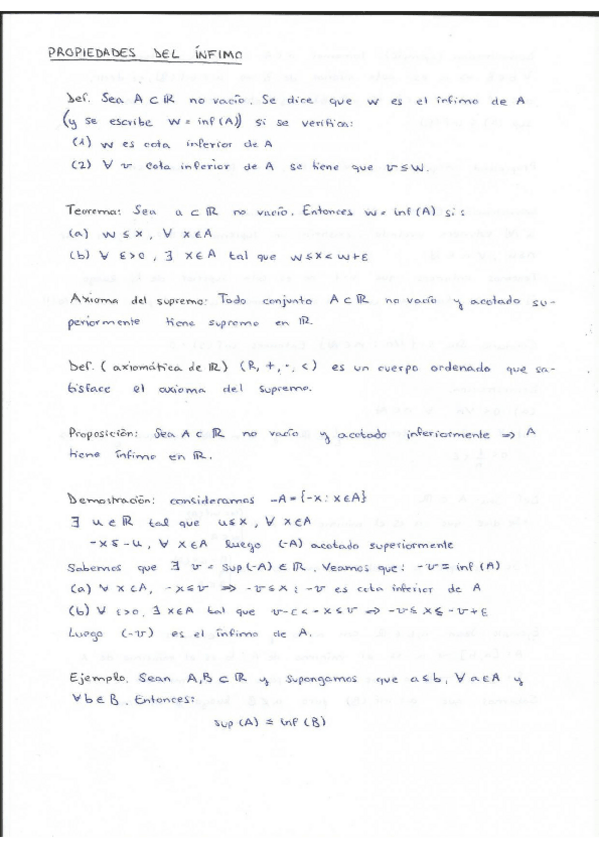 PROPIEDADES DEL ÍNFIMO
Def. Sea A ⊂ ℝ no vacío. Se dice que w es el ínfimo de A
(y se escribe w = inf(A)) si se verifica:
(1) w es cota inferior de A
(2) ∀ v cota inferior de A se tiene que v ≤ w.
Teorema: Sea a ⊂ ℝ no vacío. Entonces w = inf(A) si:
(a) w ≤ x, ∀ x ∈ A
(b) ∀ ε>0, ∃ x ∈ A tal que w ≤ x < w+ε
Axioma del supremo: Todo conjunto A ⊂ ℝ no vacío y acotado su-
periormente tiene supremo en ℝ.
Def. (axiomática de ℝ) (ℝ, +, ·, <) es un cuerpo ordenado que sa-
tisface el axioma del supremo.
Proposición: Sea A ⊂ ℝ no vacío y acotado inferiormente ⇒ A
tiene ínfimo en ℝ.
Demostración: consideramos -A = {-x : x ∈ A}
∃ u ∈ ℝ tal que u ≤ x, ∀ x ∈ A
-x ≤ -u, ∀ x ∈ A luego (-A) acotado superiormente
Sabemos que ∃ v = sup(-A) ∈ ℝ. Veamos que: -v = inf(A)
(a) ∀ x ∈ A, -x ≤ v ⇒ -v ≤ x ; -v es cota inferior de A
(b) ∀ ε>0, ∃ x ∈ A tal que v-ε < -x ≤ v ⇒ -v ≤ x ≤ -v+ε
Luego (-v) es el ínfimo de A.
Ejemplo. Sean A,B ⊂ ℝ y supongamos que a ≤ b, ∀ a ∈ A y
∀ b ∈ B. Entonces:
sup(A) ≤ inf(B)